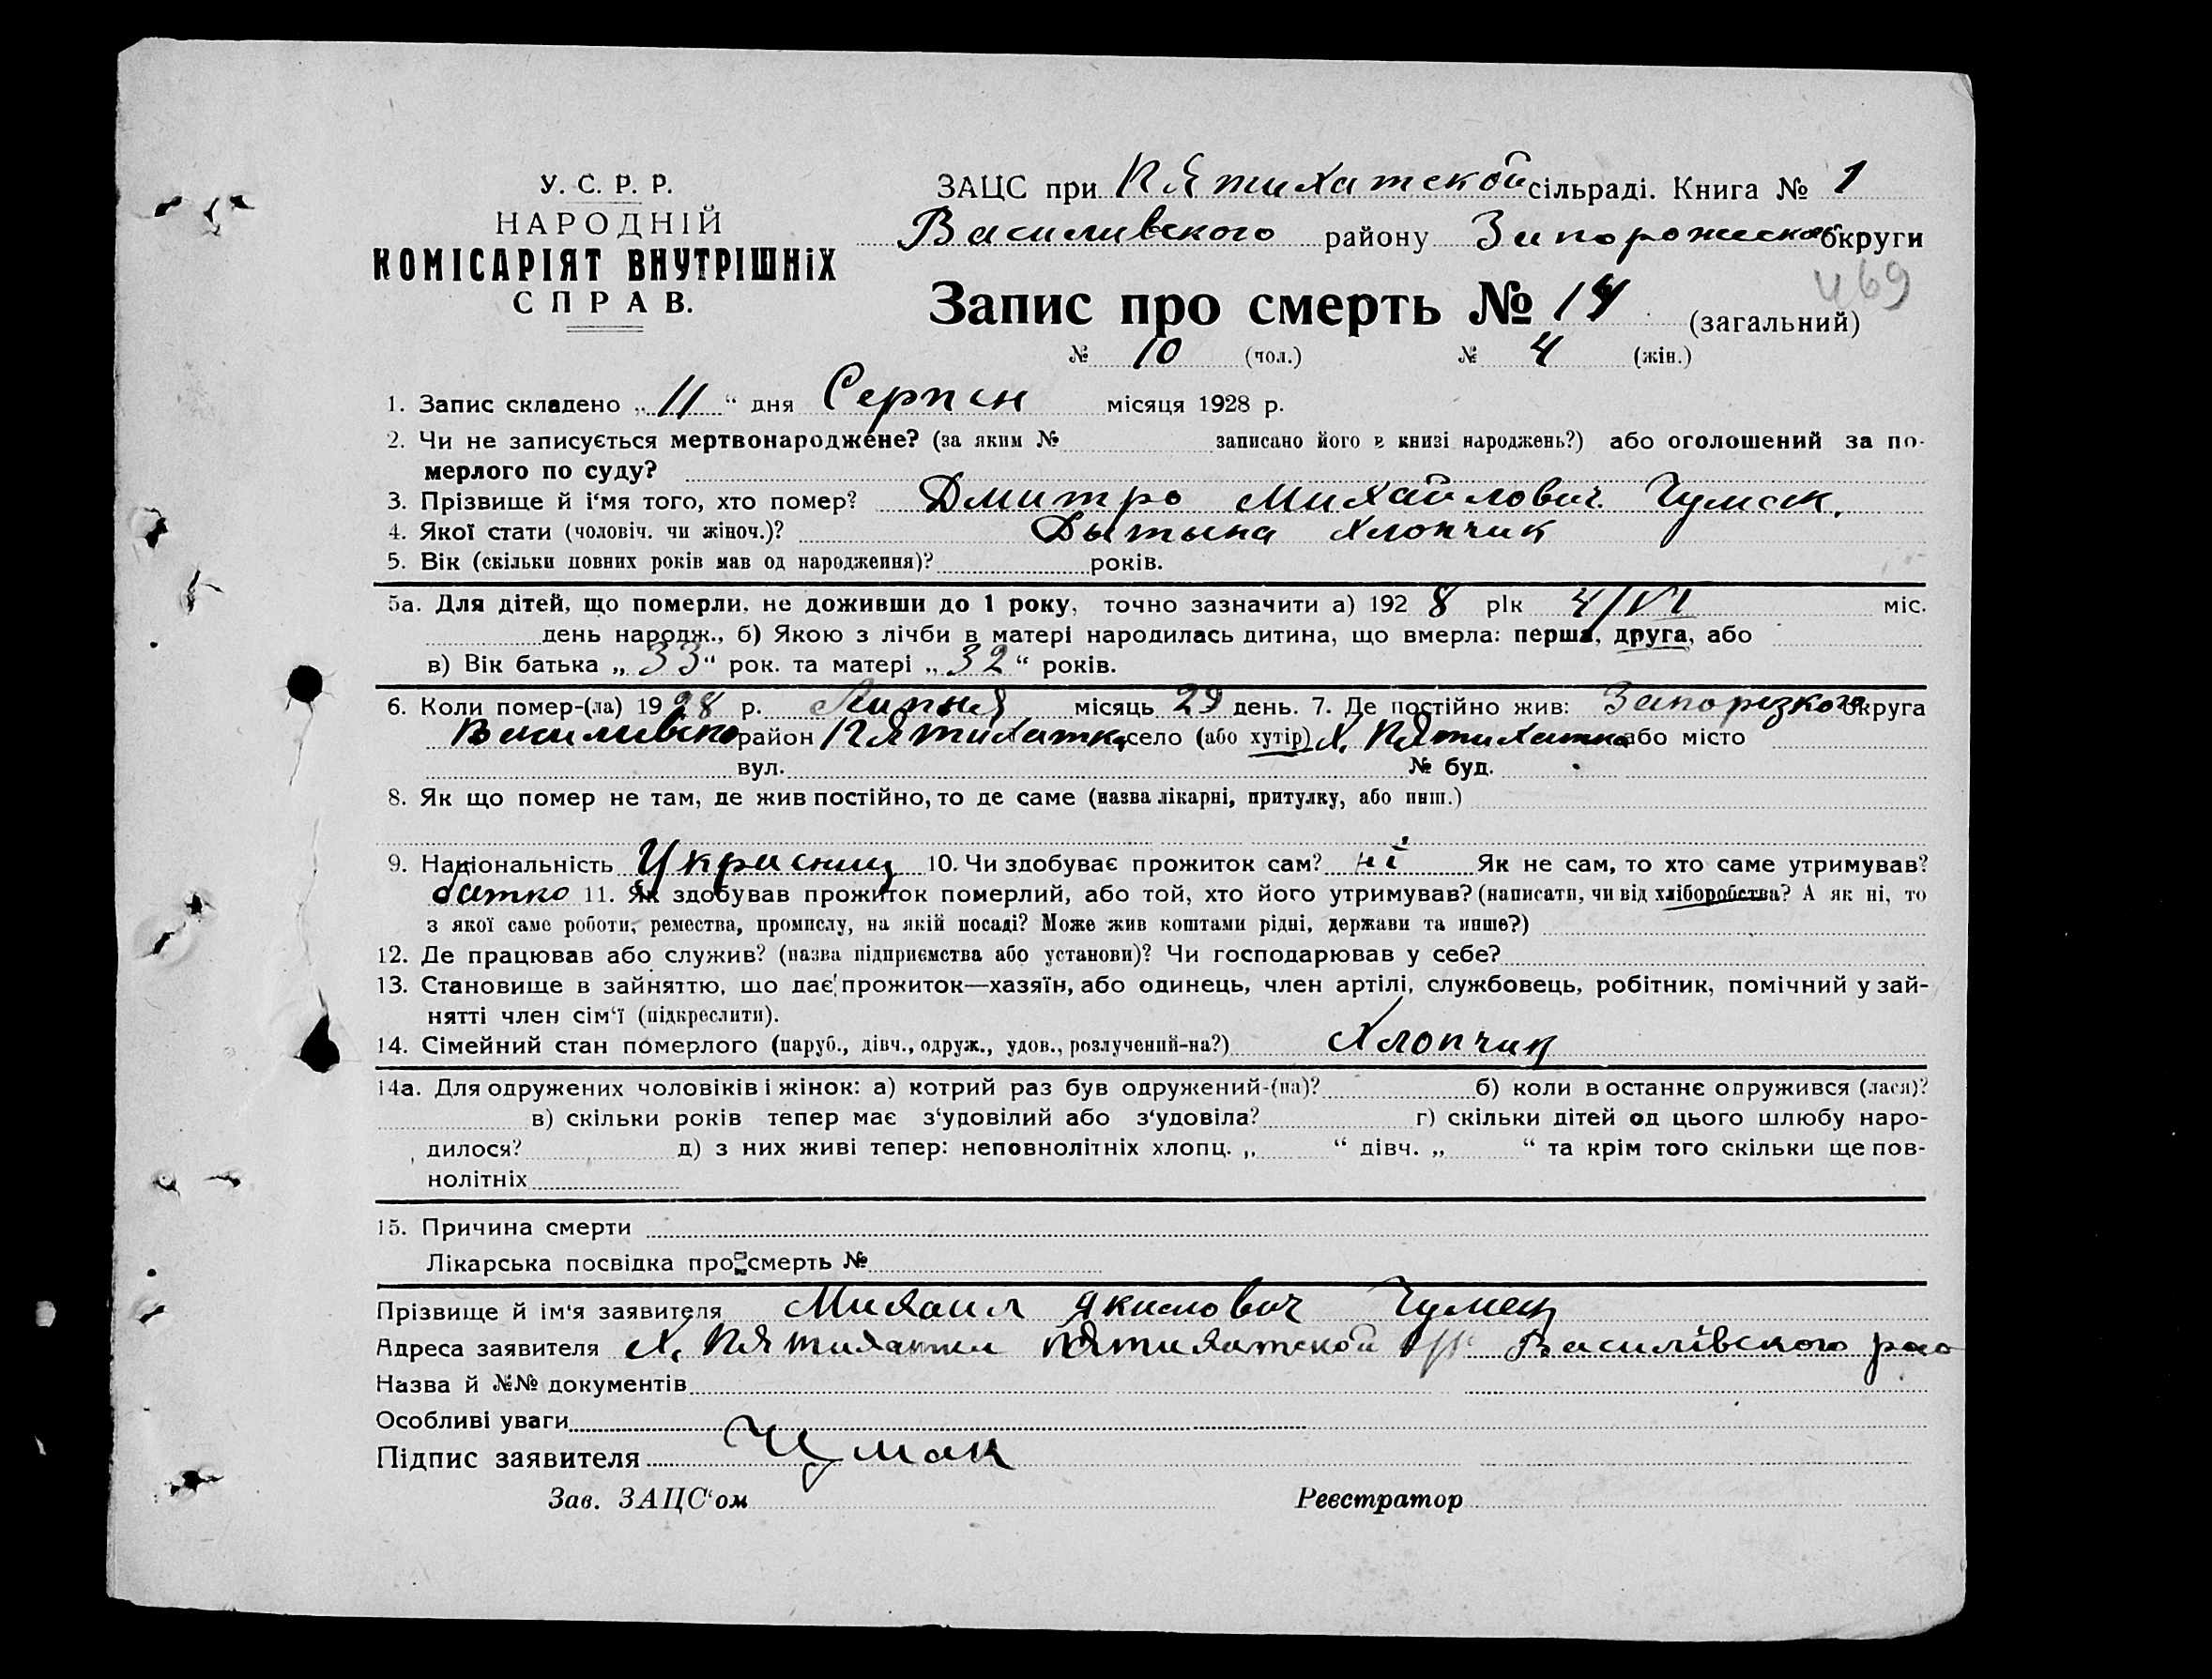 У. С. Р. Р.
НАРОДНІЙ
КОМІСАРІЯТ ВНУТРІШНІХ
СПРАВ.
ЗАЦС при Пятихатской сільраді. Книга № 1
Василивского району Запорожской округи
469
Запис про смерть № 14 (загальний)
№ 10 (чол.) № 4 (жін.)
1. Запис складено „ 11 “ дня Серпен місяця 1928 р.
2. Чи не записується мертвонароджене? (за яким № записано його в книзі народжень?) або оголошений за по-
мерлого по суду?
3. Прізвище й і‘мя того, хто помер? Дмитро Михайлович Чумак.
4. Якої стати (чоловіч. чи жіноч.)? Дытына хлопчик
5. Вік (скільки повних років мав од народження)? років.
5а. Для дітей, що померли, не доживши до 1 року, точно зазначити а) 192 8 рік 4/VI міс.
день народж., б) Якою з лічби в матері народилась дитина, що вмерла: перша, друга, або
в) Вік батька „ 33 “ рок. та матері „ 32 “ років.
6. Коли помер-(ла) 19 28 р. Липня місяць 29 день. 7. Де постійно жив: Запорізкого округа
Василивско район Пятихатка село (або хутір) Х. Пятихатка або місто
вул. № буд.
8. Як що помер не там, де жив постійно, то де саме (назва лікарні, притулку, або инш.)
9. Національність Украєниц 10. Чи здобуває прожиток сам? ні Як не сам, то хто саме утримував?
батко 11. Як здобував прожиток померлий, або той, хто його утримував? (написати, чи від хліборобства? А як ні, то
з якої саме роботи, ремества, промислу, на якій посаді? Може жив коштами рідні, держави та инше?)
12. Де працював або служив? (назва підприємства або установи)? Чи господарював у себе?
13. Становище в зайняттю, що дає прожиток—хазяїн, або одинець, член артілі, службовець, робітник, помічний у зай-
нятті член сім‘ї (підкреслити).
14. Сімейний стан померлого (паруб., дівч., одруж., удов., розлучений-на?) Хлопчик
14а. Для одружених чоловіків і жінок: а) котрий раз був одружений-(на)? б) коли в останнє одружився (лася)?
в) скільки років тепер має з‘удовілий або з‘удовіла? г) скільки дітей од цього шлюбу наро-
дилося? д) з них живі тепер: неповнолітніх хлопц. „ “ дівч. „ “ та крім того скільки ще пов-
нолітніх
15. Причина смерти
Лікарська посвідка про смерть №
Прізвище й ім‘я заявителя Михаил Якимович Чумак
Адреса заявителя Х. Пятихатки Пятихатской с/р Василівского рао
Назва й №№ документів
Особливі уваги
Підпис заявителя Чумак
Зав. ЗАЦС‘ом Реєстратор